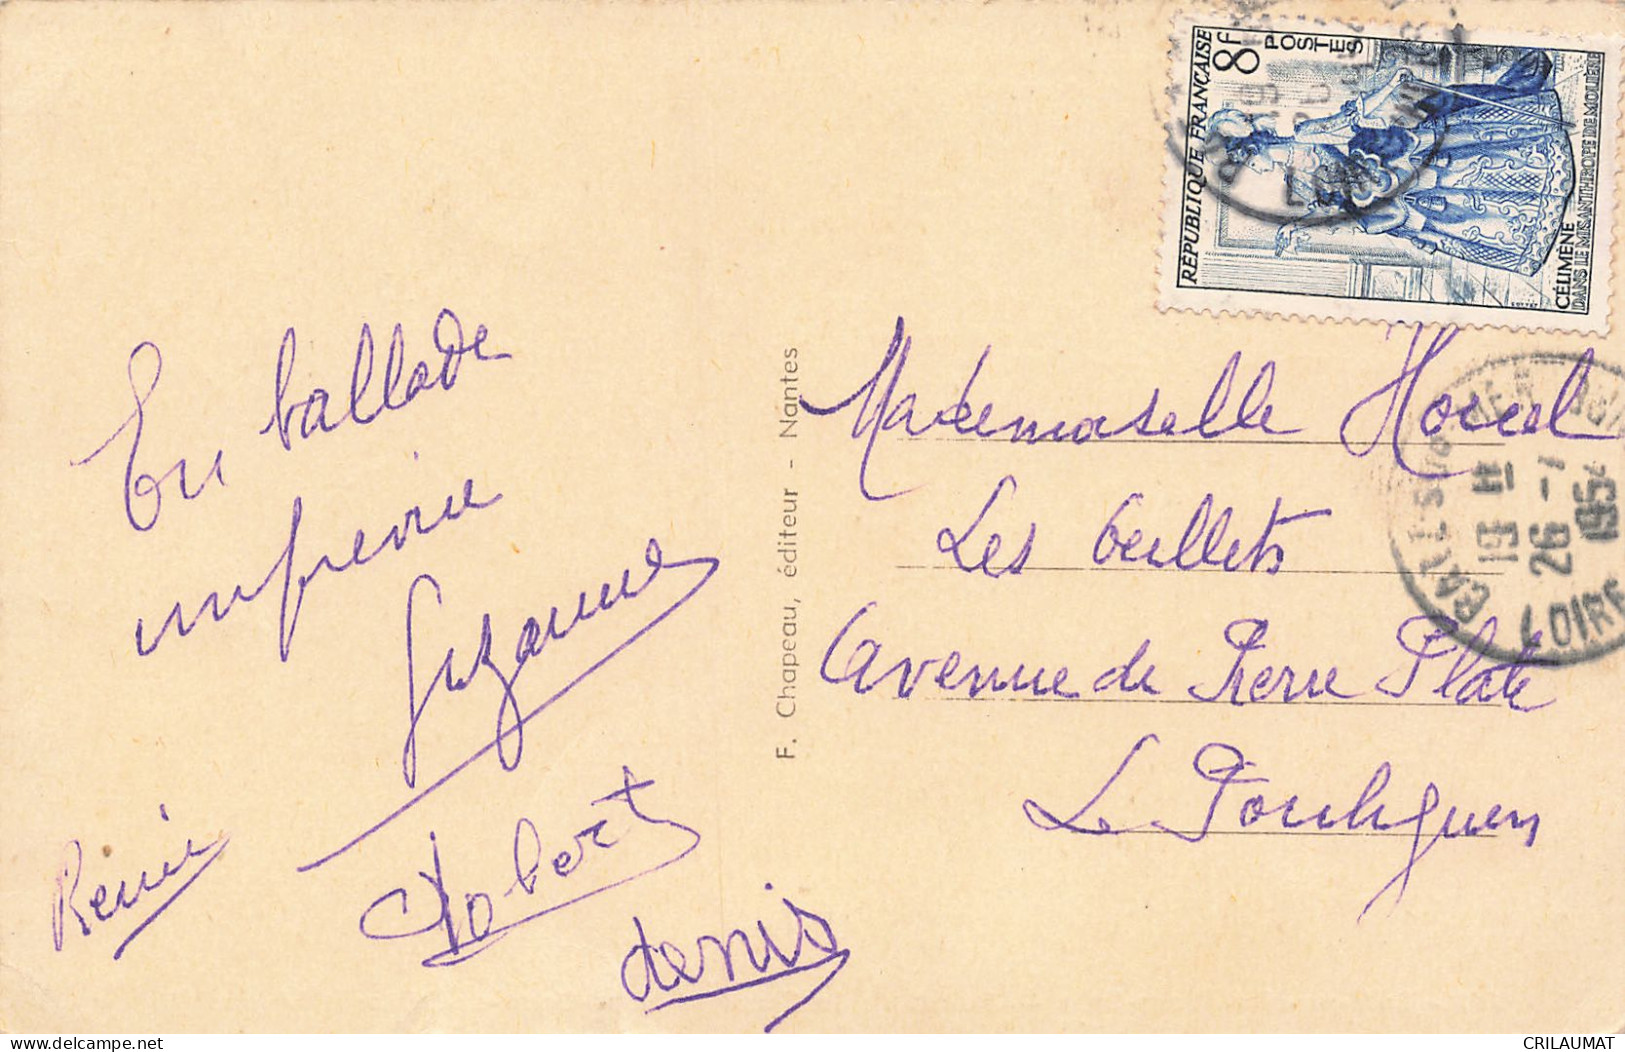 En ballade
imprévue
Suzanne
Robert
denis
F. Chapeau, éditeur - Nantes
RÉPUBLIQUE FRANÇAISE
8f
POSTES
CÉLIMÈNE
DANS LE MISANTHROPE DE MOLIÈRE
Mademoiselle
Les Oeillets
avenue de Pierre Plate
Le Pouliguen
19 H
26 - 7
195
LOIRE
Delcampe.net
CRILAUMAT